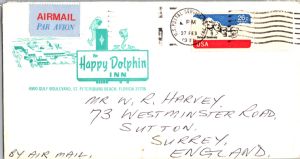 AIRMAIL
PAR AVION
The
Happy Dolphin
INN
4900 GULF BOULEVARD, ST. PETERSBURG BEACH, FLORIDA 33706
PM
27 FEB
26c
USA
MR. W. R. HARVEY.
73 WESTMINSTER ROAD,
SUTTON.
SURREY.
ENGLAND.
BY AIR MAIL.